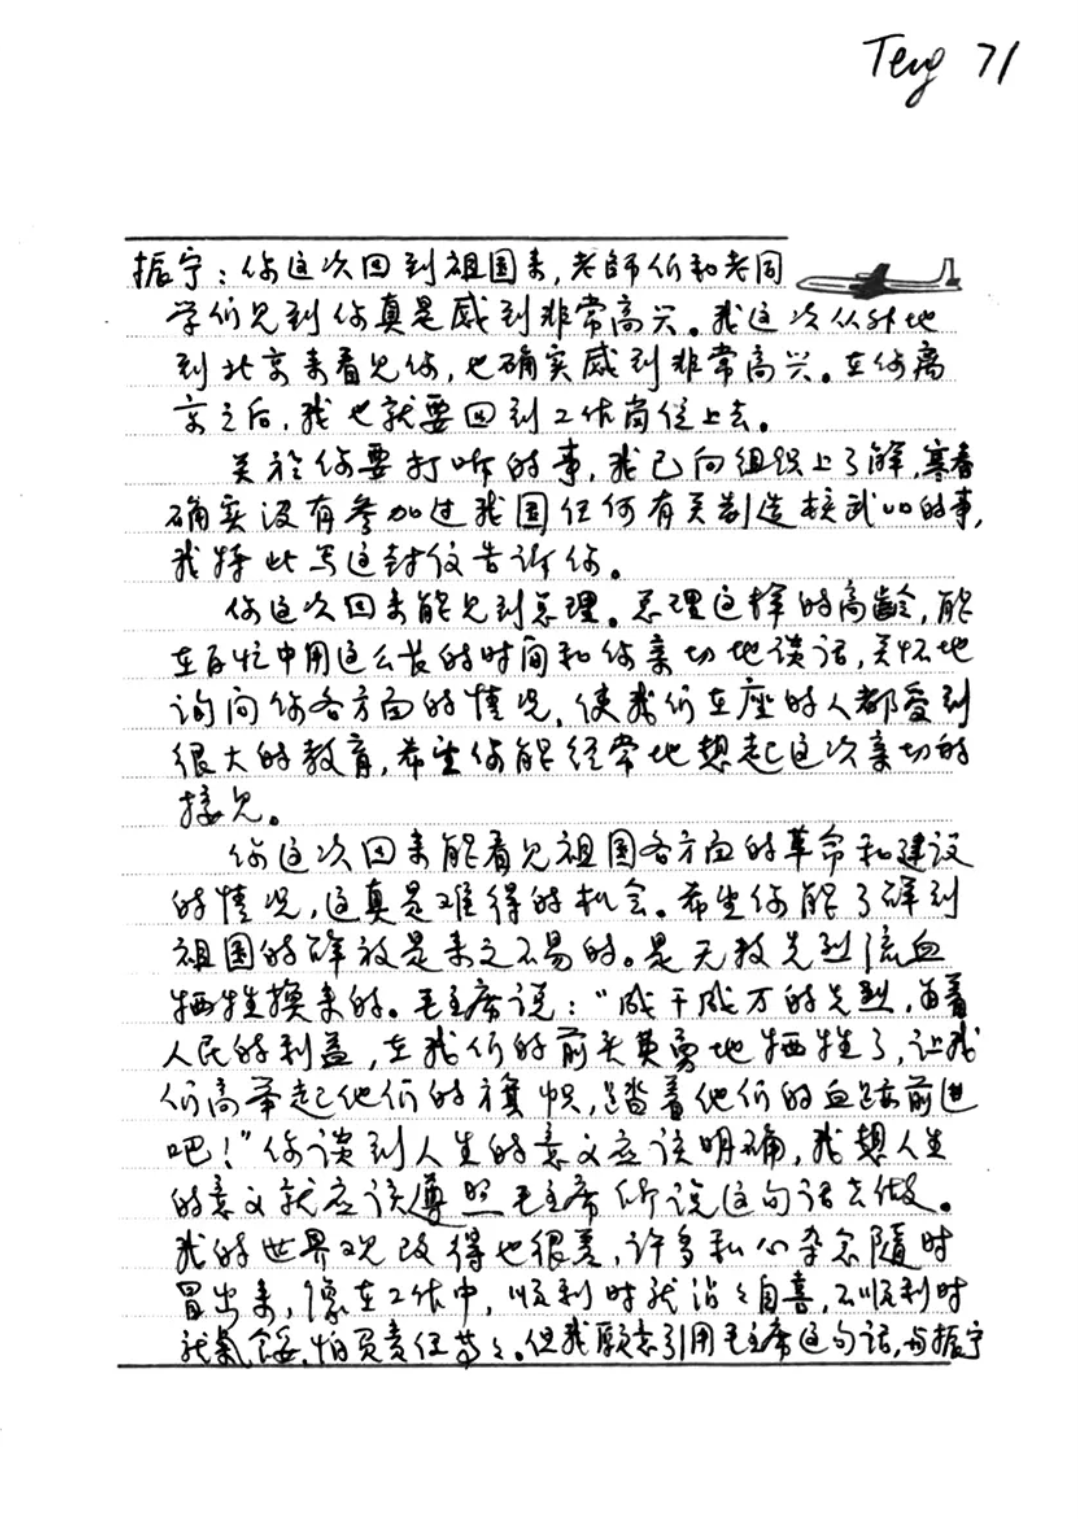 Teng 71
振宁：你这次回到祖国来，老師们和老同
学们见到你真是感到非常高兴。我这次从外地
到北京来看见你，也确实感到非常高兴。在你离
京之后，我也就要回到工作岗位上去。
关於你要打听的事，我已向组织上了解，寒春
确实没有参加过我国任何有关制造核武四的事，
我特此写这封信告诉你。
你这次回来能见到总理。总理这样的高齡，能
在百忙中用这么长的时间和你亲切地谈话，关怀地
询问你各方面的情况，使我们在座的人都受到
很大的教育，希望你能经常地想起这次亲切的
接见。
你这次回来能看见祖国各方面的革命和建设
的情况，这真是难得的机会。希望你能了解到
祖国的解放是来之不易的。是无数先烈流血
牺牲换来的。毛主席说：“成千成万的先烈，为着
人民的利益，在我们的前头英勇地牺牲了，让我
们高举起他们的旗帜，踏着他们的血迹前进
吧！”你谈到人生的意义应该明确，我想人生
的意义就应该遵照毛主席所说这句话去做。
我的世界观改得也很差，许多私心杂念随时
冒出来，像在工作中，顺利时就沾々自喜，不顺利时
就氣餒，怕负责任等々。但我願意引用毛主席这句话，与振宁